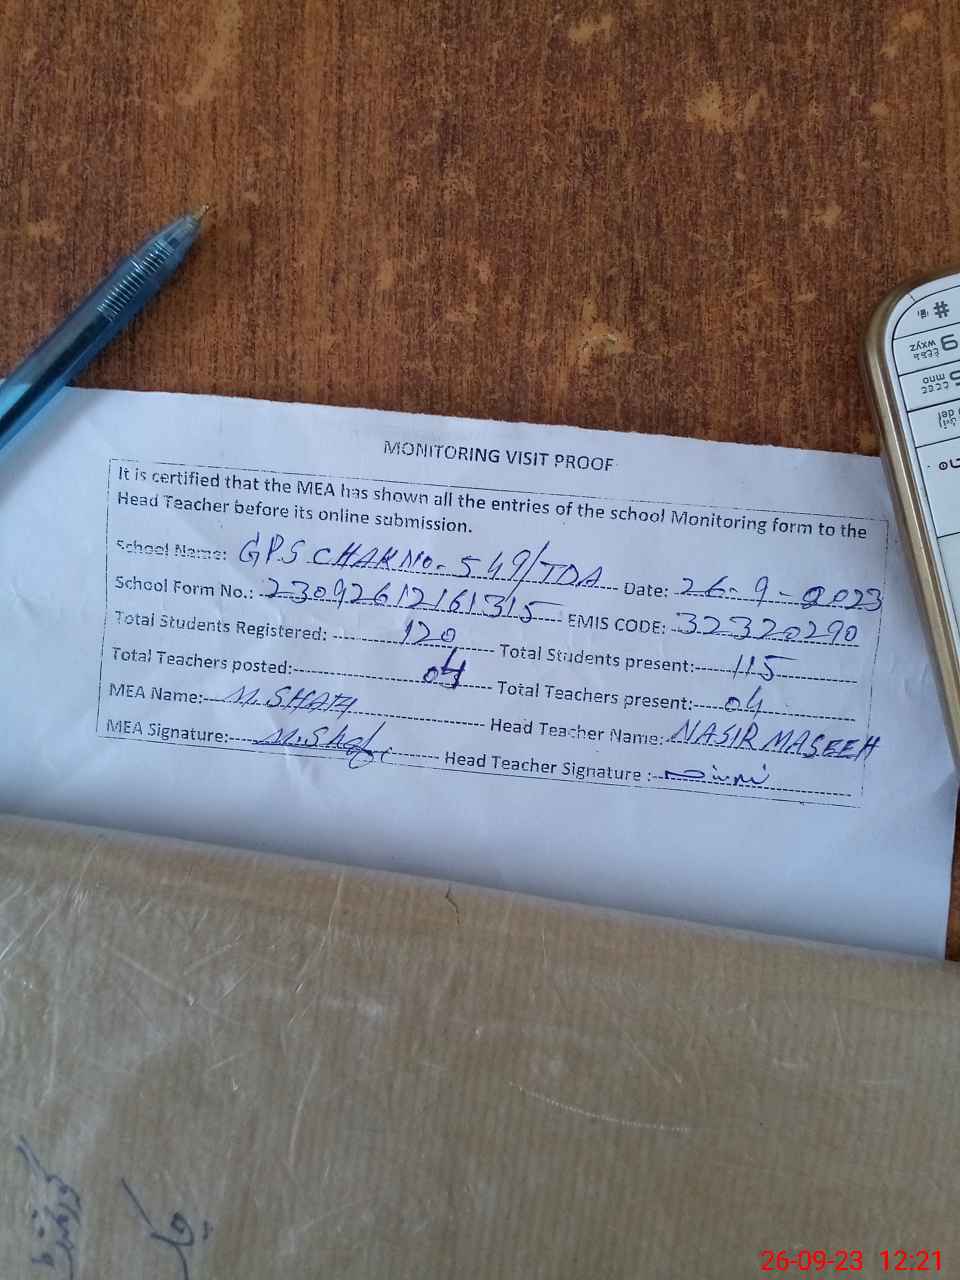 MONITORING VISIT PROOF
It is certified that the MEA has shown all the entries of the school Monitoring form to the
Head Teacher before its online submission.
School Name: GPS CHAK NO. 549/TDA Date: 26-9-2023
School Form No.: 23092612161315 EMIS CODE: 32320290
Total Students Registered: 120 Total Students present: 115
Total Teachers posted: 04 Total Teachers present: 04
MEA Name: M. SHAFI Head Teacher Name: NASIR MASEEH
MEA Signature: M. Shafi Head Teacher Signature :
#
9 wxyz
mno
def
چک
26-09-23 12:21